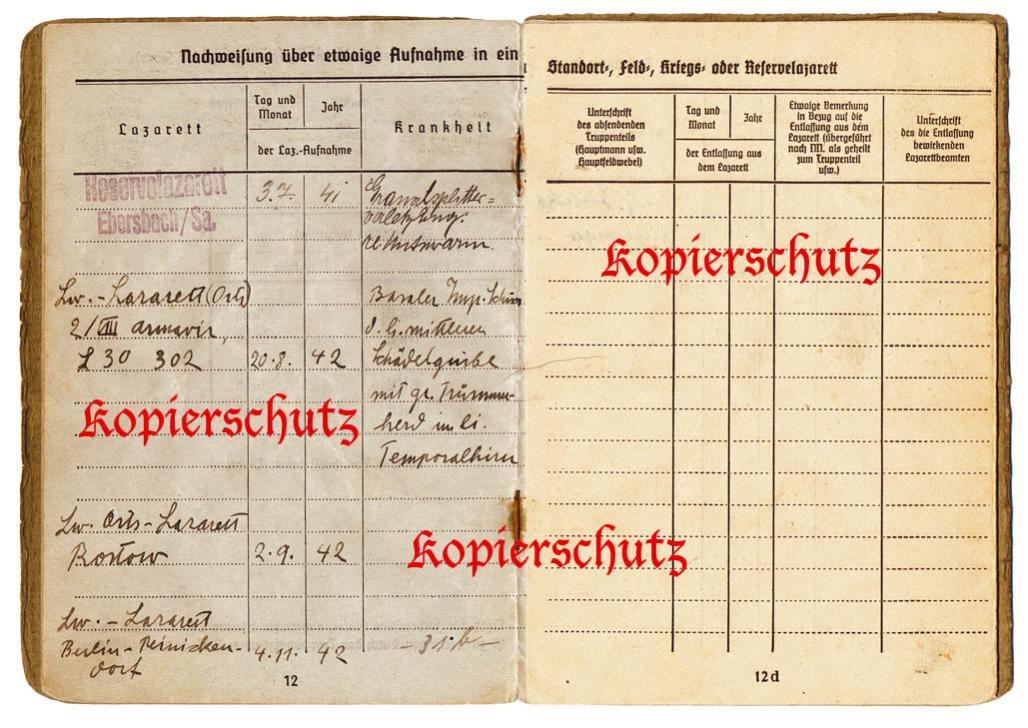 Nachweisung über etwaige Aufnahme in ein
Lazarett
Tag und Monat
Jahr
der Laz.-Aufnahme
Krankheit
Reservelazarett
Ebersbach/Sa.
3.7. 41
Granatsplitter=
verletzung.
Lw.-Lazarett (Orts)
Basaler Imp.
2/VIII Armavir,
d. li. mittleren
L 30 302 20.8. 42 Schädelgrube
mit gr. Trümmer-
herd im li.
Temporalhirn
Lw. Orts-Lazarett
Rostow 2.9. 42
Lw.-Lazarett
Berlin-Reinicken-
dorf
4.11. 42
12
Standort-, Feld-, Kriegs- oder Reservelazarett
Unterschrift
des absendenden
Truppenteils
(Hauptmann usw.
Hauptfeldwebel)
Tag und
Monat
Jahr
der Entlassung aus
dem Lazarett
Etwaige Bemerkung
in Bezug auf die
Entlassung aus dem
Lazarett (übergeführt
nach NN. als geheilt
zum Truppenteil
usw.)
Unterschrift
des die Entlassung
bewirkenden
Lazarettbeamten
12d
Kopierschutz
Kopierschutz
Kopierschutz